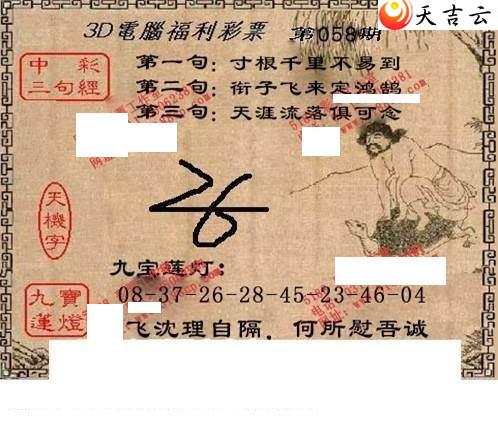 天吉云
3D電腦福利彩票 第058期
中彩
三句經
第一句：寸根千里不易到
第二句：衔子飞来定鸿鹄
第三句：天涯流落俱可念
天機字
26
九宝莲灯：
九寶
蓮燈
08-37-26-28-45-23-46-04
飞沈理自隔，何所慰吾诚